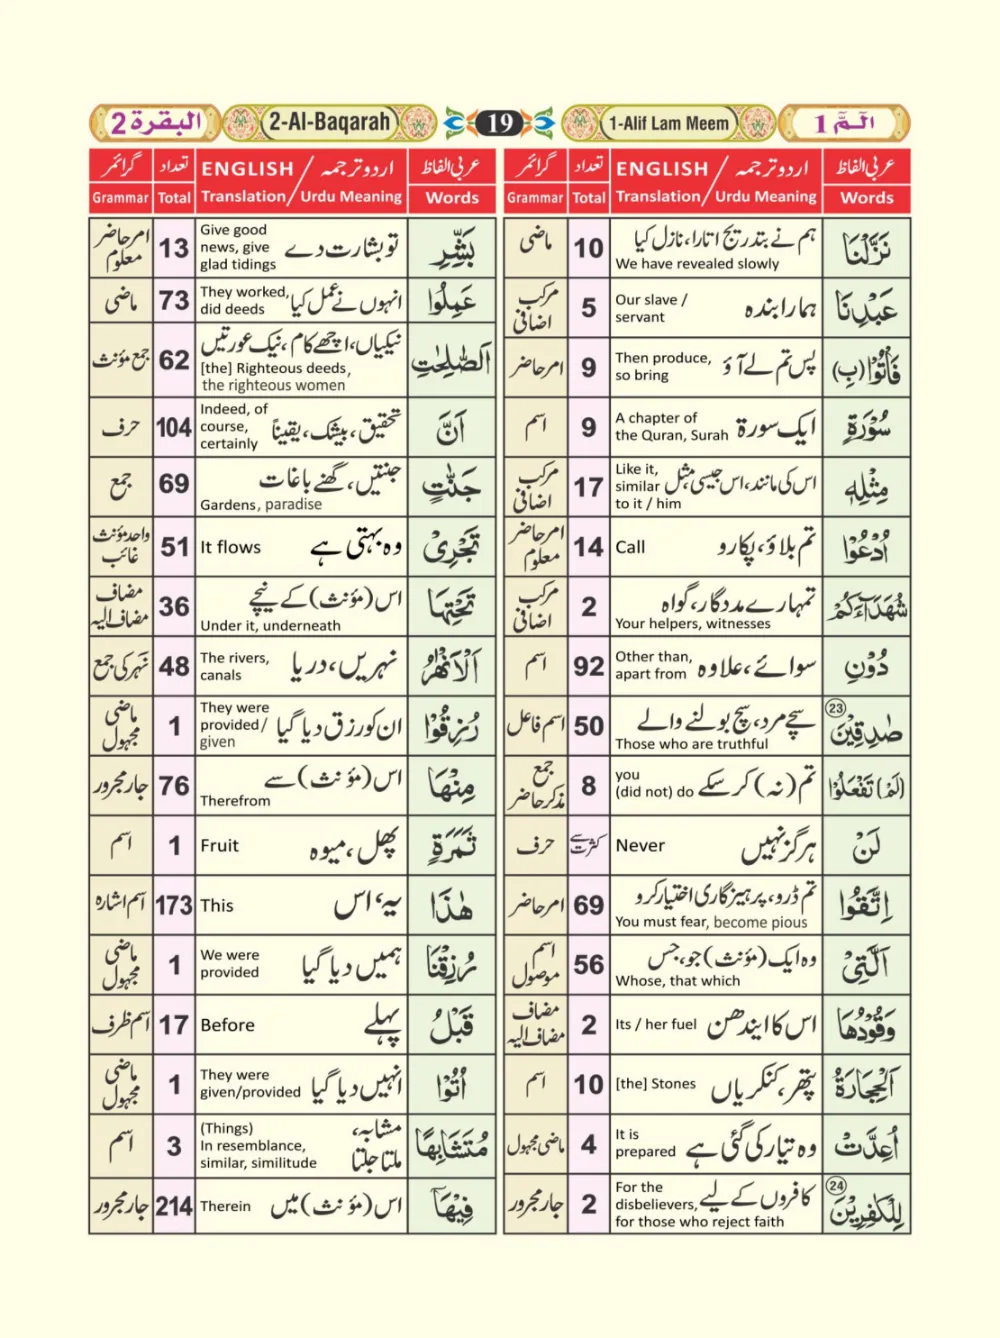 الٓمّٓ 1
1-Alif Lam Meem
19
2-Al-Baqarah
البقرة 2
عربی الفاظ
Words
ENGLISH / اردو ترجمہ
Translation / Urdu Meaning
تعداد
Total
گرائمر
Grammar
نَزَّلْنَا
ہم نے بتدریج اتارا، نازل کیا
We have revealed slowly
10
ماضی
عَبْدِنَا
ہمارا بندہ
Our slave /
servant
5
مرکب
اضافی
فَأْتُوْا (بِ)
پس تم لے آؤ
Then produce,
so bring
9
امر حاضر
سُوْرَةٍ
ایک سورۃ
A chapter of
the Quran, Surah
9
اسم
مِثْلِهٖ
اس کی مانند، اس جیسی مثل
Like it,
similar
to it / him
17
مرکب
اضافی
ادْعُوْا
تم بلاؤ، پکارو
Call
14
امر حاضر
معلوم
شُهَدَآءَكُمْ
تمہارے مددگار، گواہ
Your helpers, witnesses
2
مرکب
اضافی
دُوْنِ
سوائے، علاوہ
Other than,
apart from
92
اسم
صٰدِقِيْنَ 23
سچے مرد، سچ بولنے والے
Those who are truthful
50
اسم فاعل
(لَمْ) تَفْعَلُوْا
تم (نہ) کر سکے
you
(did not) do
8
جمع
مذکر حاضر
لَنْ
ہرگز نہیں
Never
کثرت سے
حرف
اتَّقُوْا
تم ڈرو، پرہیزگاری اختیار کرو
You must fear, become pious
69
امر حاضر
الَّتِيْ
وہ ایک (مؤنث) جو، جس
Whose, that which
56
اسم
موصول
وَقُوْدُهَا
اس کا ایندھن
Its / her fuel
2
مضاف
مضاف الیہ
الْحِجَارَةُ
پتھر، کنکریاں
[the] Stones
10
اسم
اُعِدَّتْ
وہ تیار کی گئی ہے
It is
prepared
4
ماضی مجہول
لِلْكٰفِرِيْنَ 24
کافروں کے لیے
For the
disbelievers,
for those who reject faith
2
جار مجرور
عربی الفاظ
Words
ENGLISH / اردو ترجمہ
Translation / Urdu Meaning
تعداد
Total
گرائمر
Grammar
بَشِّرِ
تو بشارت دے
Give good
news, give
glad tidings
13
امر حاضر
معلوم
عَمِلُوا
انہوں نے عمل کیا
They worked,
did deeds
73
ماضی
الصّٰلِحٰتِ
نیکیاں، اچھے کام، نیک عورتیں
[the] Righteous deeds,
the righteous women
62
جمع مؤنث
اَنَّ
تحقیق، بیشک، یقیناً
Indeed, of
course,
certainly
104
حرف
جَنّٰتٍ
جنتیں، گھنے باغات
Gardens, paradise
69
جمع
تَجْرِيْ
وہ بہتی ہے
It flows
51
واحد مؤنث
غائب
تَحْتِهَا
اس (مؤنث) کے نیچے
Under it, underneath
36
مضاف
مضاف الیہ
الْاَنْهٰرُ
نہریں، دریا
The rivers,
canals
48
نہر کی جمع
رُزِقُوْا
ان کو رزق دیا گیا
They were
provided/
given
1
ماضی
مجہول
مِنْهَا
اس (مؤنث) سے
Therefrom
76
جار مجرور
ثَمَرَةٍ
پھل، میوہ
Fruit
1
اسم
هٰذَا
یہ، اس
This
173
اسم اشارہ
رُزِقْنَا
ہمیں دیا گیا
We were
provided
1
ماضی
مجہول
قَبْلُ
پہلے
Before
17
اسم ظرف
اُتُوْا
انہیں دیا گیا
They were
given/provided
1
ماضی
مجہول
مُتَشَابِهًا
مشابہ،
ملتا جلتا
(Things)
In resemblance,
similar, similitude
3
اسم
فِيْهَآ
اس (مؤنث) میں
Therein
214
جار مجرور